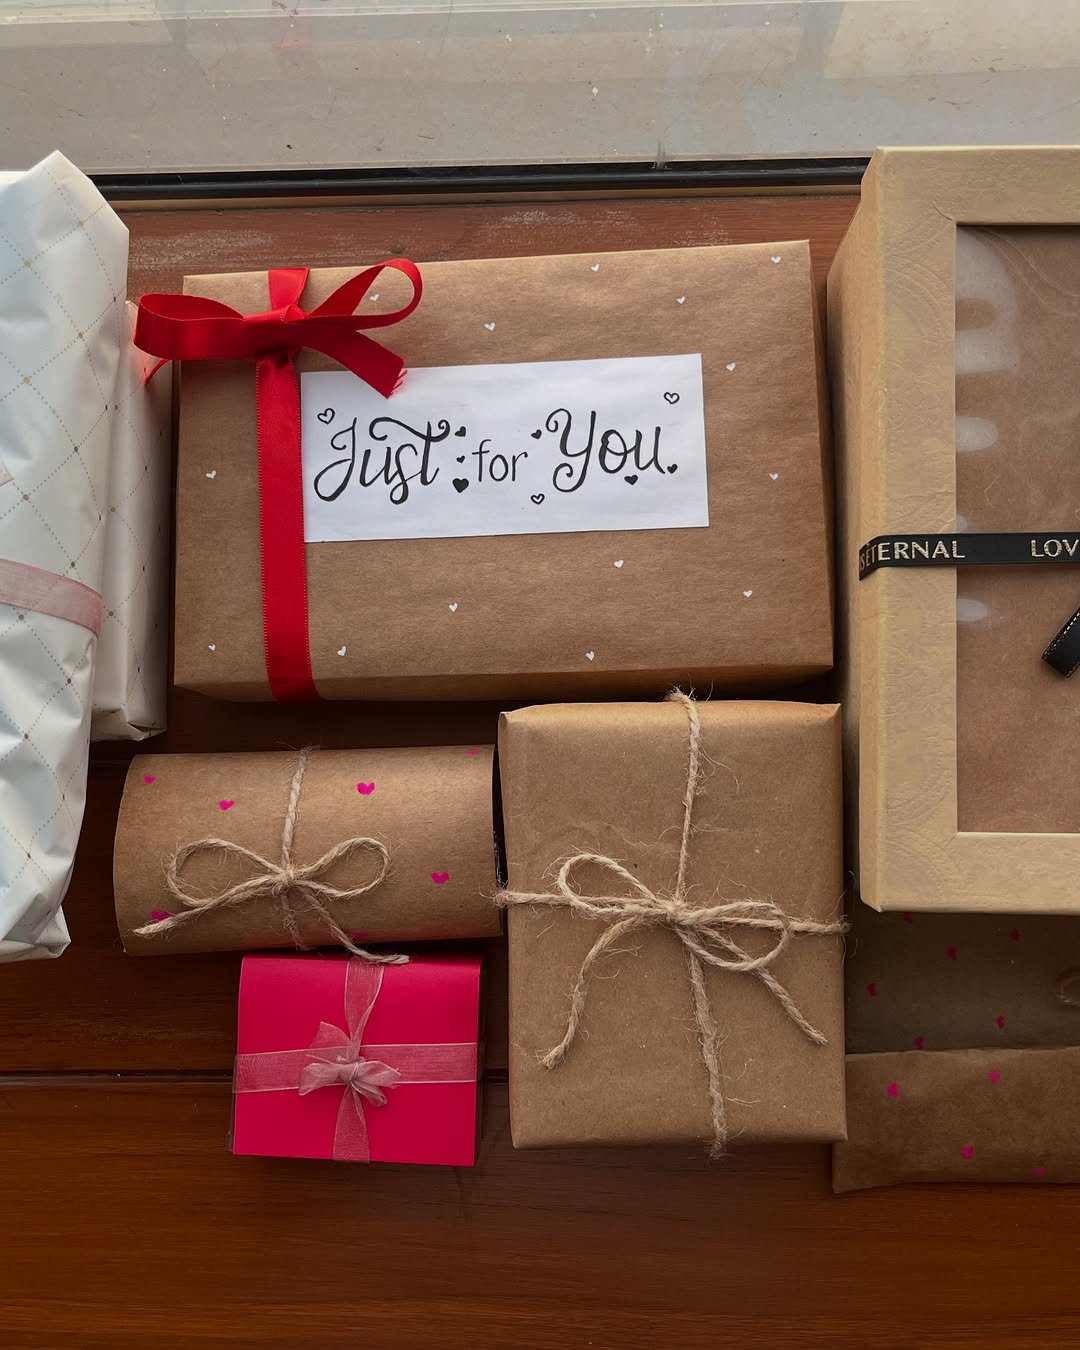 Just for You.
ETERNAL LOV